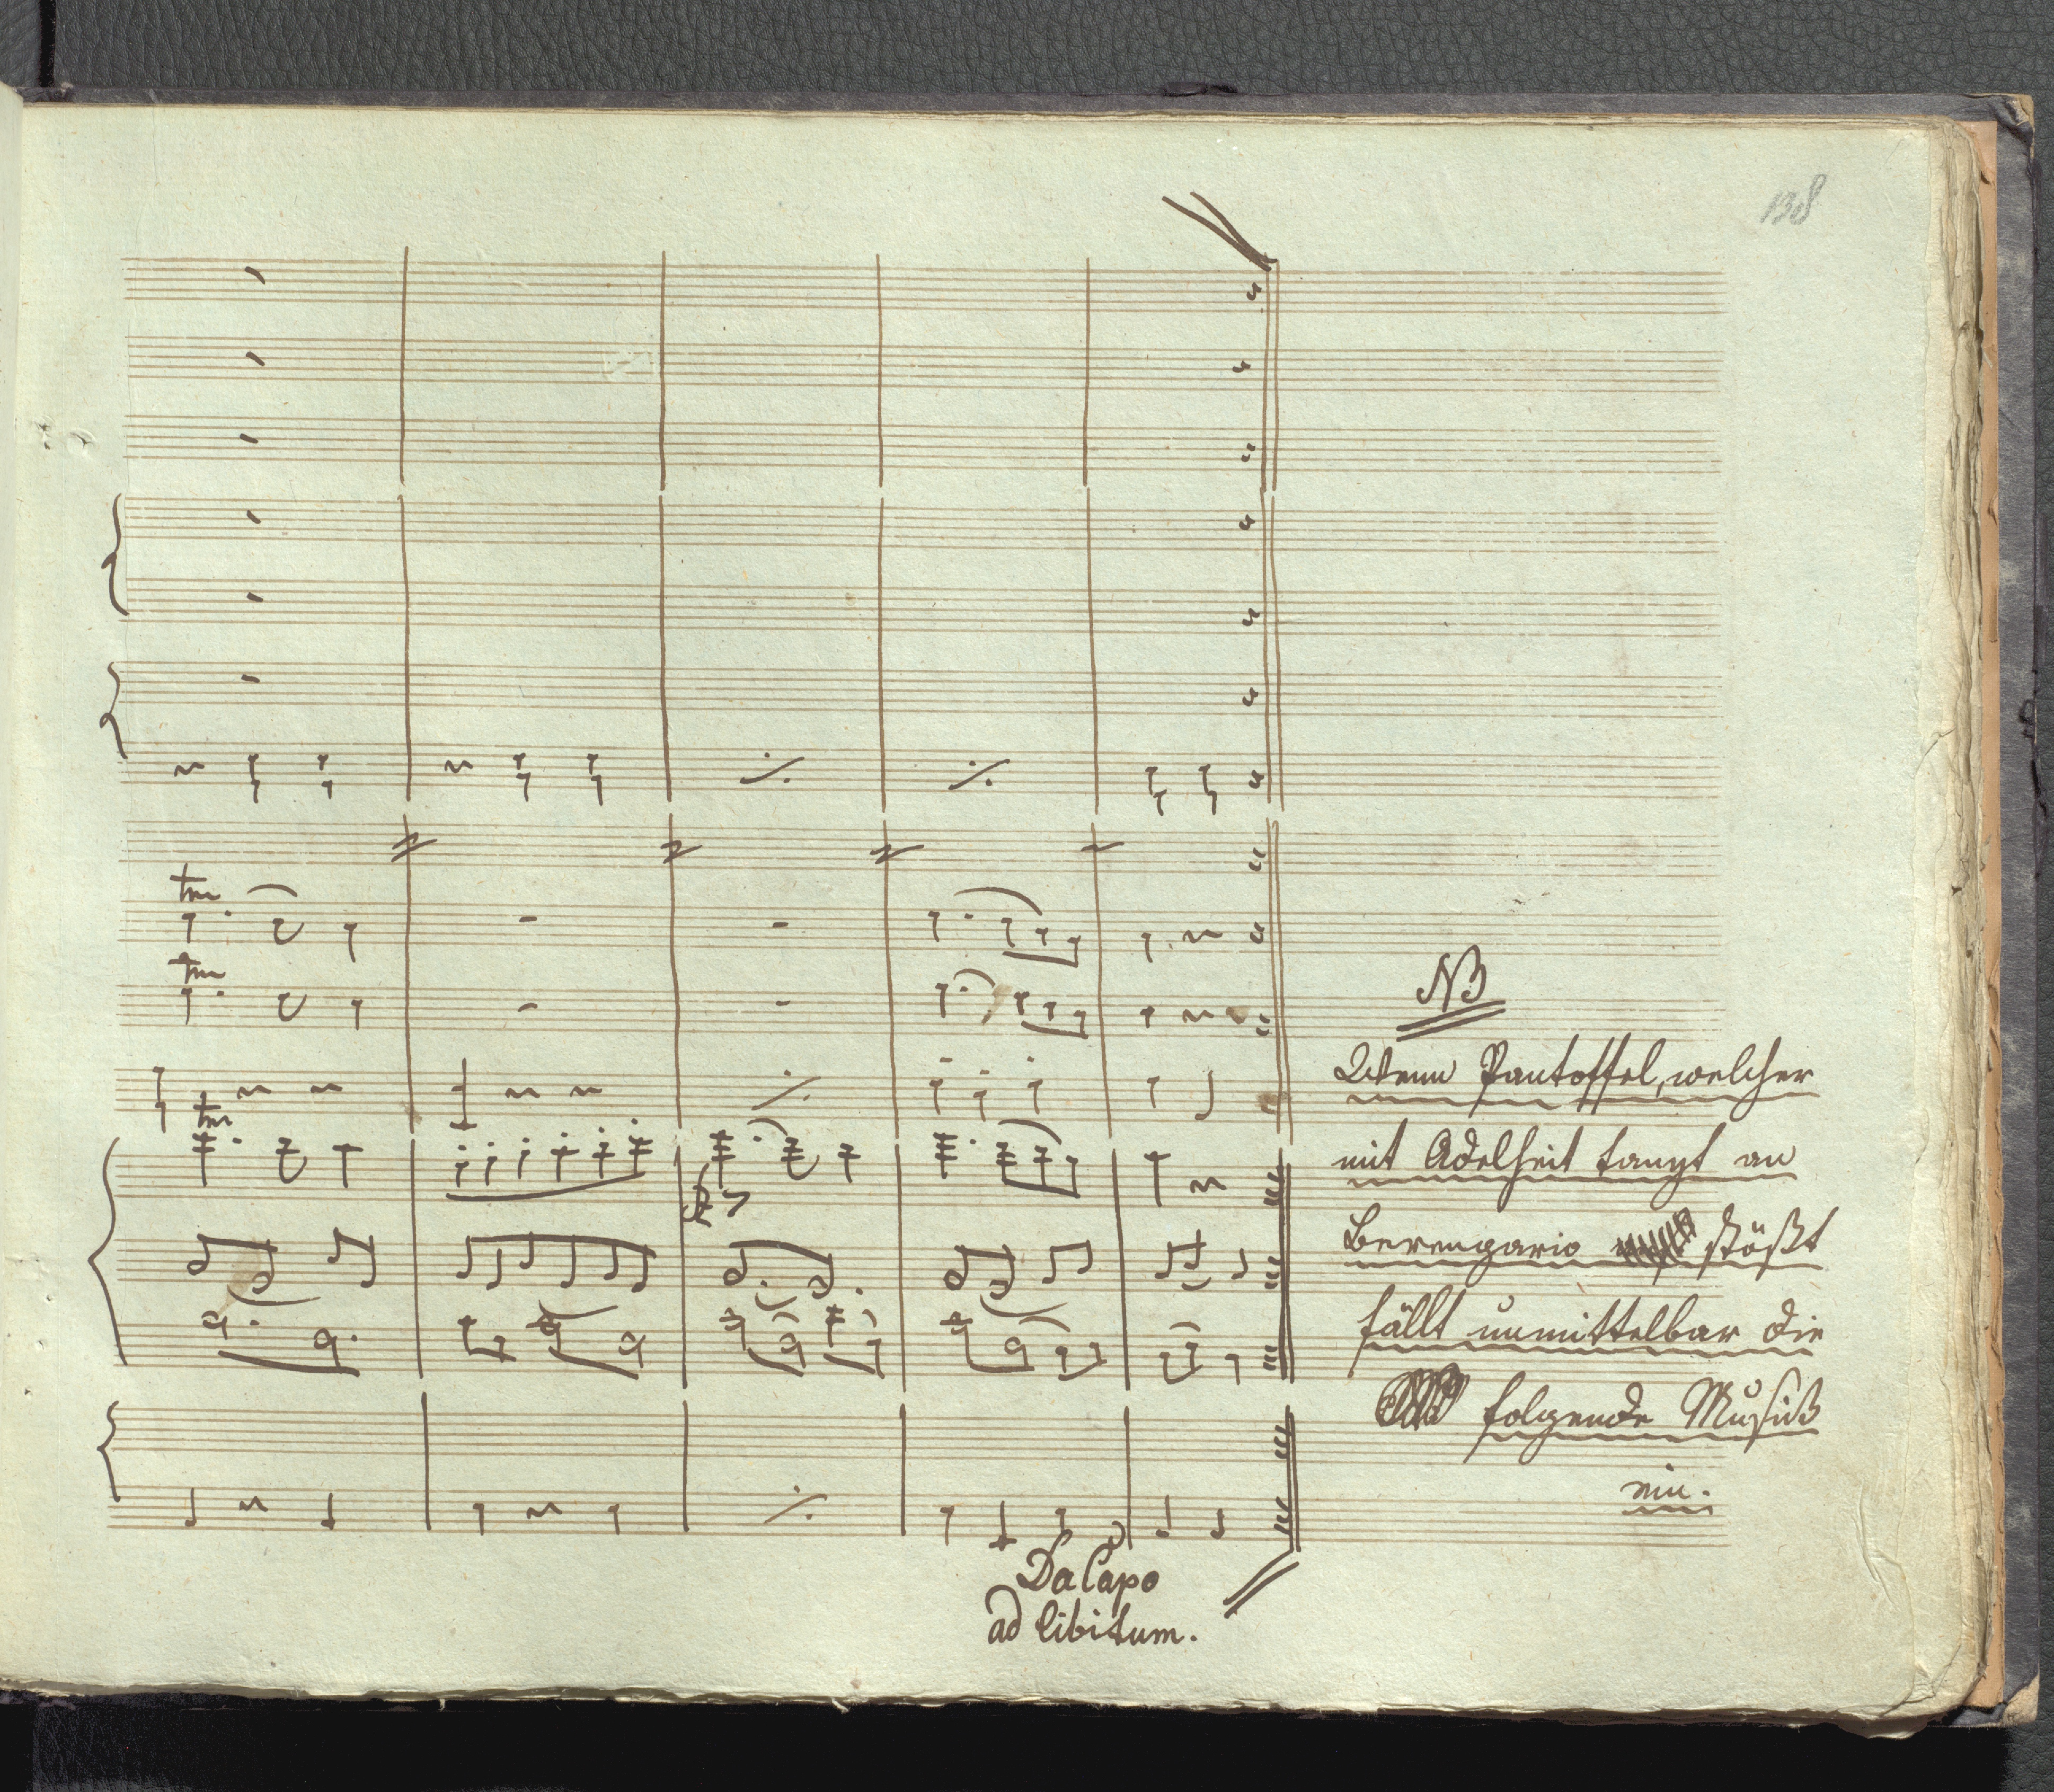 138
tr
tr
tr
NB
Wenn Pantoffel, welcher
mit Adelheit tanzt an
Berengario stößt
fällt unmittelbar die
folgende Musik
ein.
Da Capo
ad libitum.